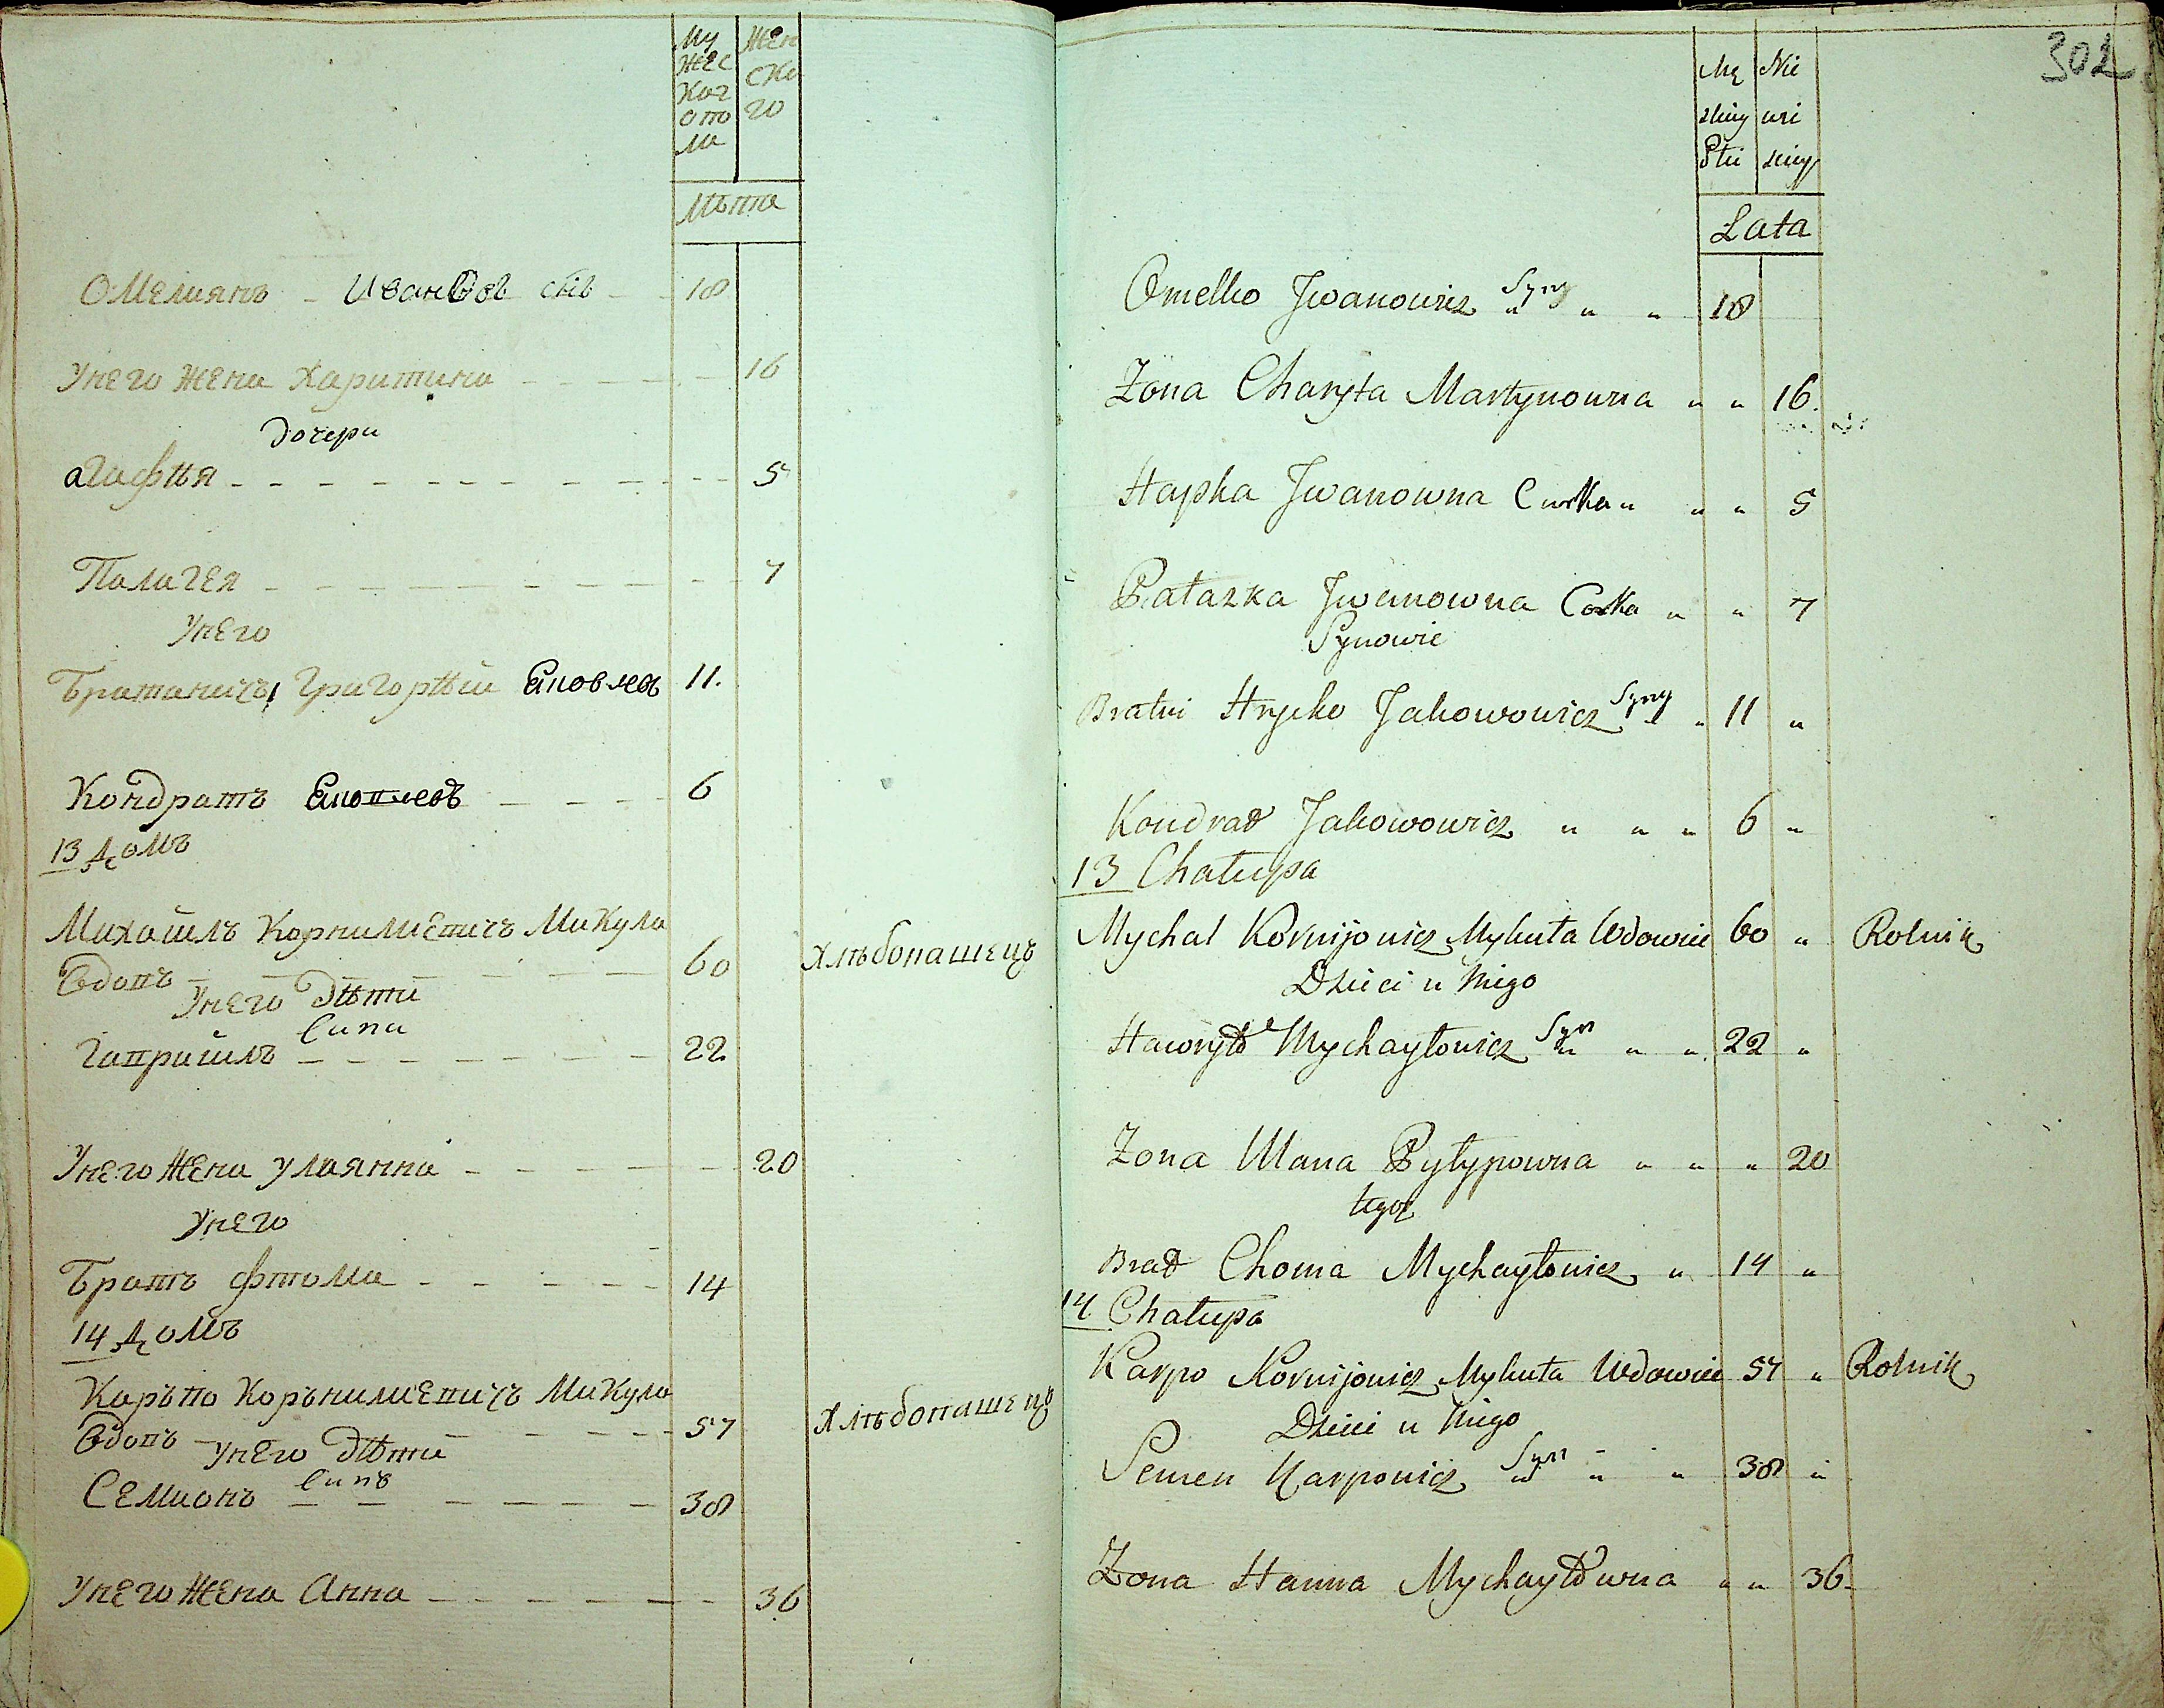 Му
жес
ког
о по
ла
Жен
ско
го
Лѣта
Омелиянъ - Ивановъ снъ - - 18
Унего жена Харитина - - - - - 16
дочери
агафия - - - - - - - - - - 5
Палагея - - - - - - - - - 7
Унего
Братаничъ Григорѣй Яковлев 11.
Кондратъ Яковлевъ - - - - 6
13 домъ
Михайилъ Корнилиевичъ Микула
Вдовъ - - - - - 60 Хлѣбопашецъ
Унего дѣти
Сини
Гавриилъ - - - - - - - 22
Унего жена Улаянна - - - - - - 20
Унего
Братъ фтома - - - - - 14
14 домъ
Карьпо Корьнилиевичъ Микула
Вдовъ - - - - - 57 Хлѣбопашецъ
Унего дѣти
Синъ
Семионъ - - - - - - - 38
Унего жена Анна - - - - - - - 36
302
Mę
skiey
Płci
Nie
wei
skiey
Lata
Omelko Jwanowicz Syny " " " 18
Żona Charyta Martynowna " " 16.
Hapka Jwanowna Curka " " " 5
Pałazka Jwanowna Corka " " 7
Synowie
Bratni Hryćko Jakowowicz Syny " " 11 "
Kondrad Jakowowicz " " " 6 "
13 Chałupa
Mychal Kornijowicz Mykuła Wdowiec 60 " Rolnik
Dzieci u Niego
Hawryło Mychayłowicz Syn " " " 22 "
Żona Ulana Pyłypowna " " " 20
tegoż
Brad Choma Mychayłowicz " 14 "
14 Chałupa
Karpo Kornijowicz Mykuła Wdowiec 57 " Rolnik
Dzieci u Niego
Semen Karpowicz Syn " " " 38 "
Żona Hanna Mychayłowna " " 36